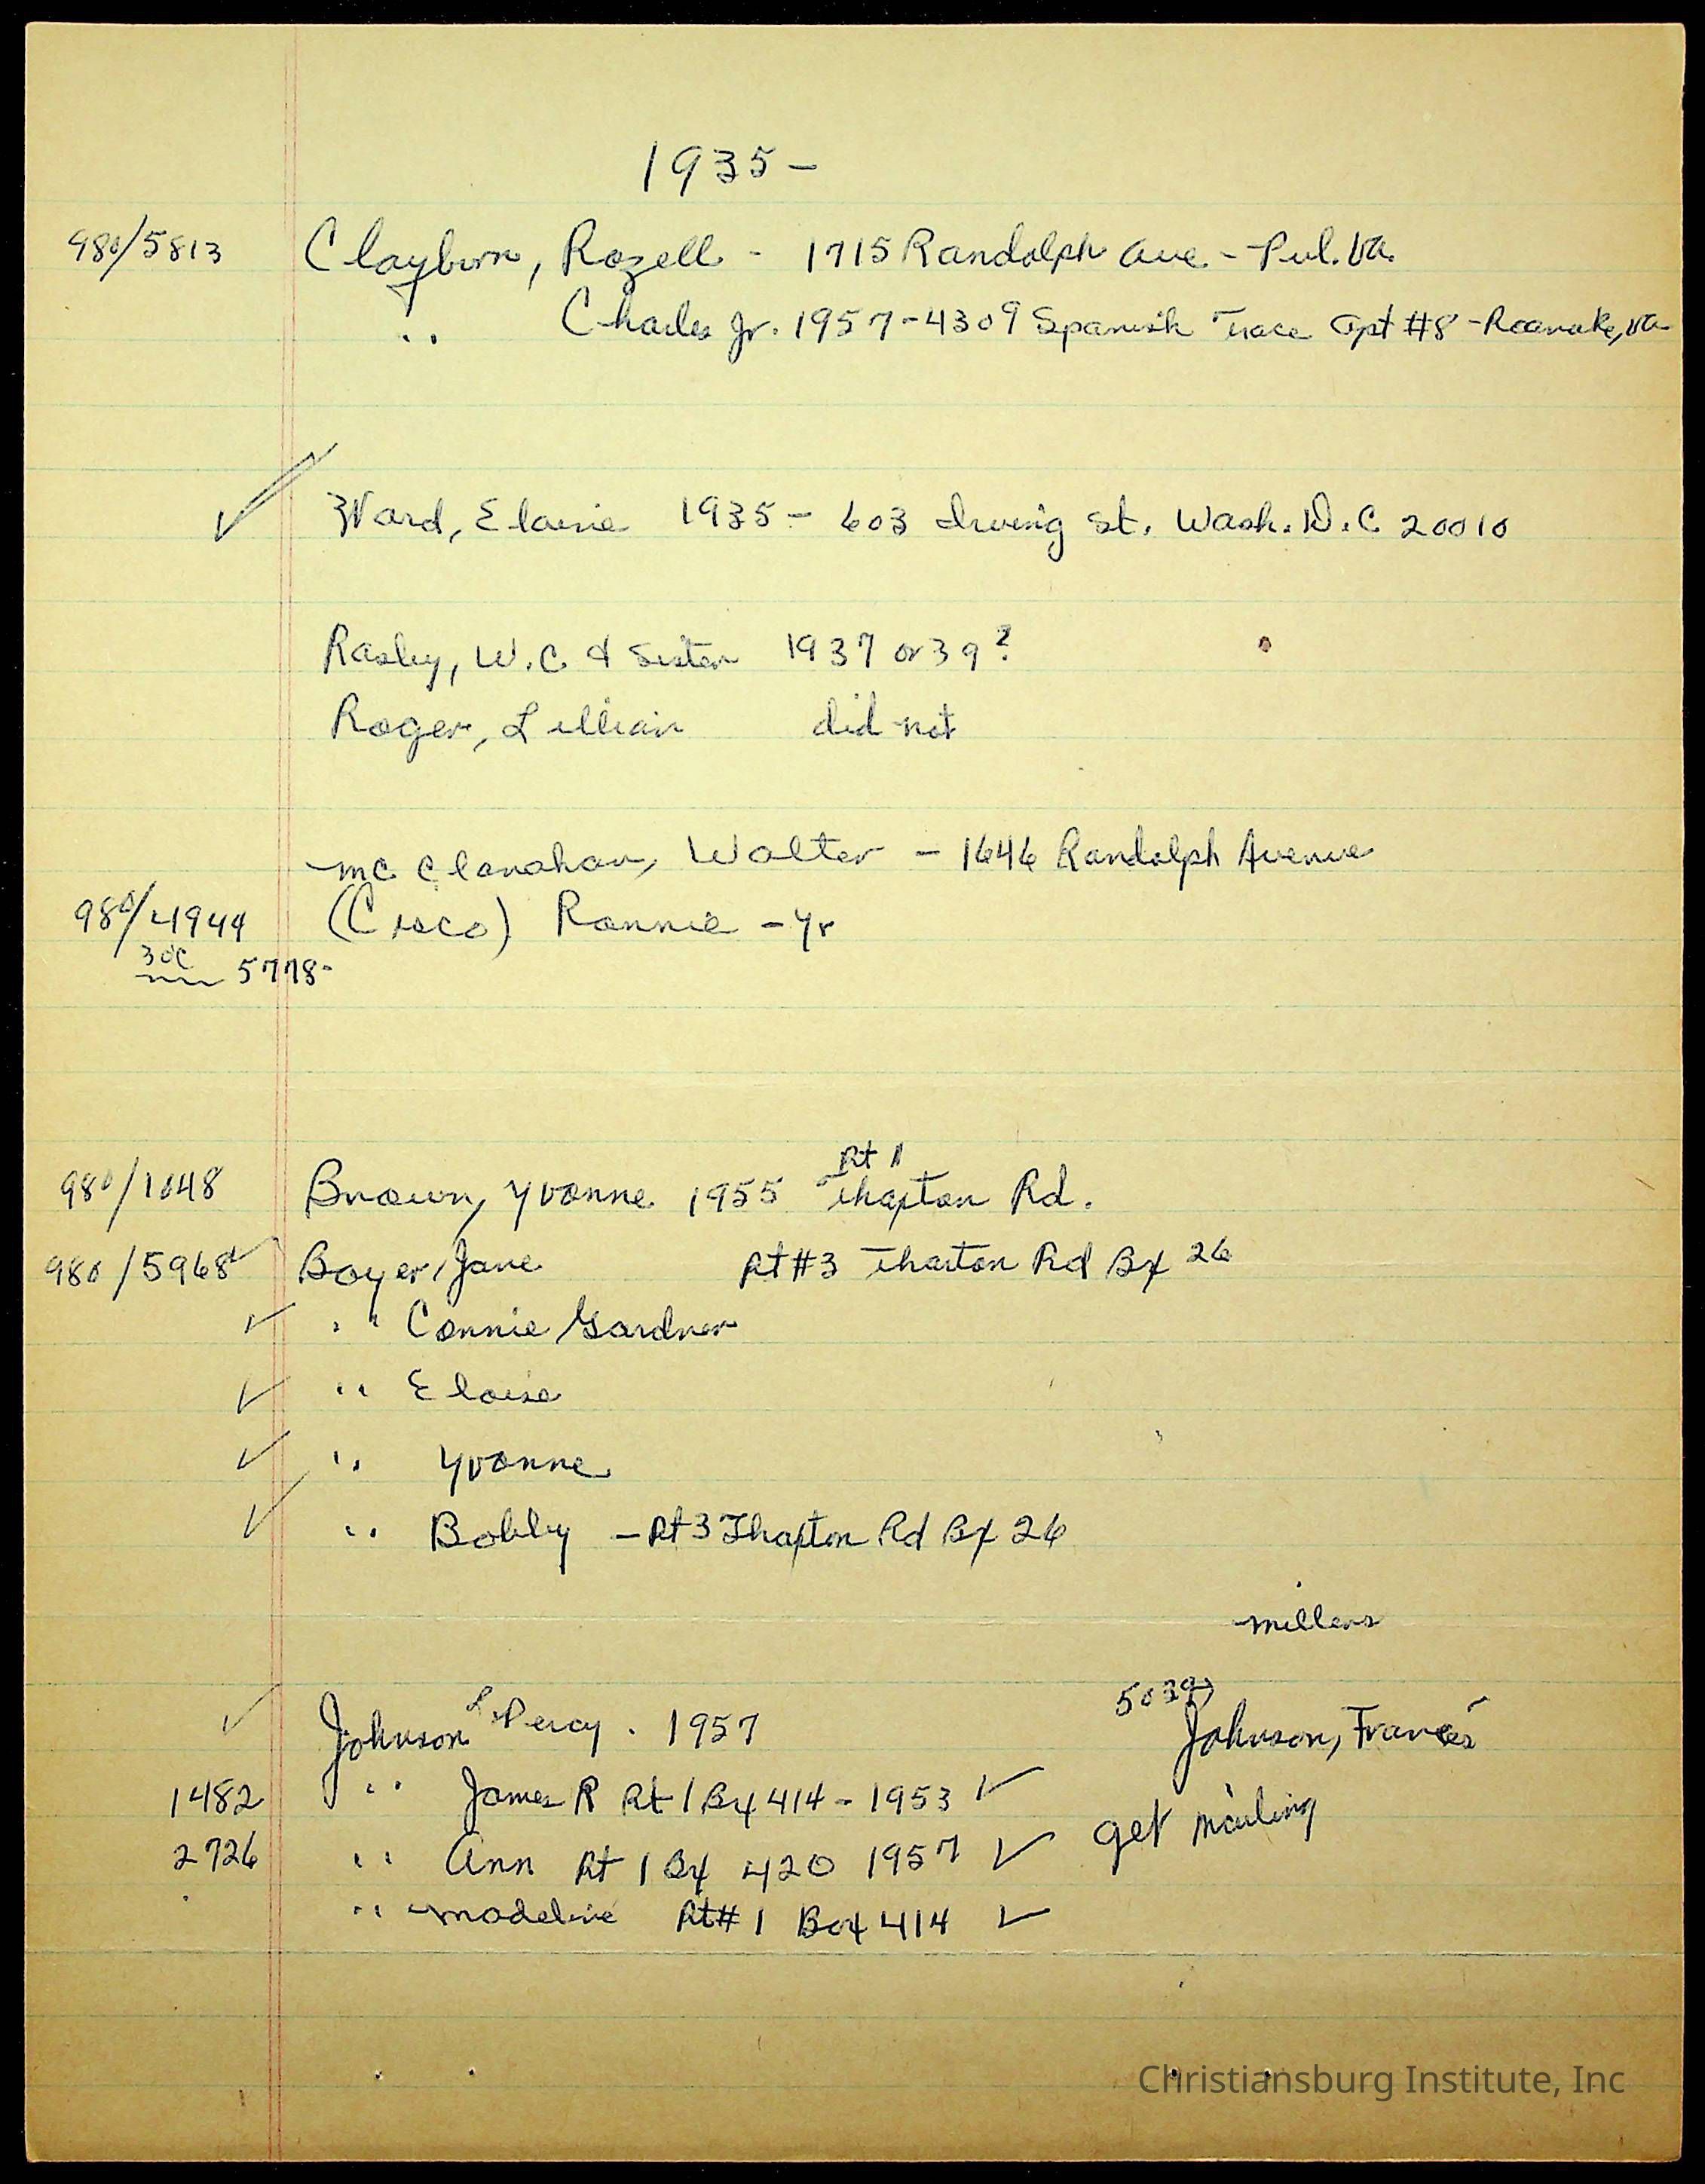 1935-
980/5813 Clayburn, Rozell - 1715 Randolph Ave - Pul. Va.
" Charles Jr. 1957-4309 Spanish Trace Apt #8 - Roanoke, Va
✓ Ward, Elaine 1935- 603 Irving St. Wash. D.C 20010
Rasley, W.C. & Sister 1937 or 39?
Roger, Lillian did not
Mc Clanahan, Walter - 1646 Randolph Avenue
980/4944 (Cisco) Ronnie - yr
5778-
Rt 1
980/1048 Brown, Yvonne 1955 Thaxton Rd.
980/5968 ✓ Boyer, Jane Rt #3 Thaxton Rd Bx 26
✓ " Connie Gardner
✓ " Eloise
✓ " Yvonne
✓ " Bobby - Rt 3 Thaxton Rd Bx 26
millers
5039
✓ Johnson Percy. 1957 Johnson, Frances
1482 " James R Rt 1 Bx 414 - 1953 ✓
get mailing
2726 " Ann Rt 1 Bx 420 1957 ✓
" Madeline Rt# 1 Box 414 ✓
Christiansburg Institute, Inc